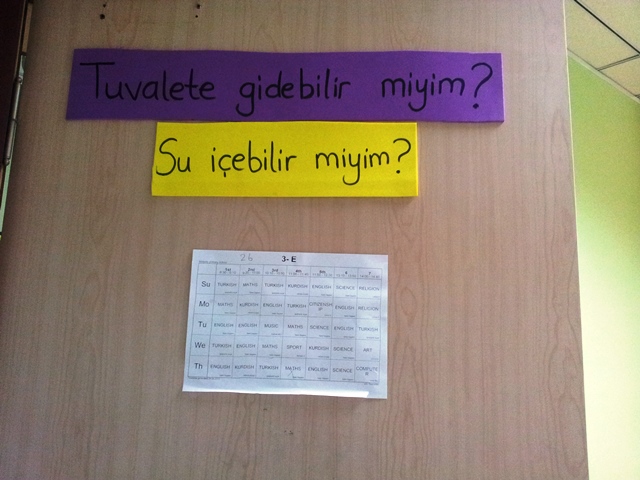 Tuvalete gidebilir miyim?
Su içebilir miyim?
24
3- E
1st 2nd 3rd 4th 5th 6 7
Su TURKISH MATHS TURKISH KURDISH ENGLISH SCIENCE RELIGION
Mo MATHS KURDISH ENGLISH TURKISH CITIZENSHIP ENGLISH RELIGION
Tu ENGLISH ENGLISH MUSIC MATHS SCIENCE ENGLISH TURKISH
We TURKISH ENGLISH MATHS SPORT KURDISH SCIENCE ART
Th ENGLISH KURDISH TURKISH MATHS ENGLISH SCIENCE COMPUTER